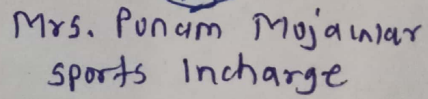 Mrs. Punam Mojamlar
Sports Incharge